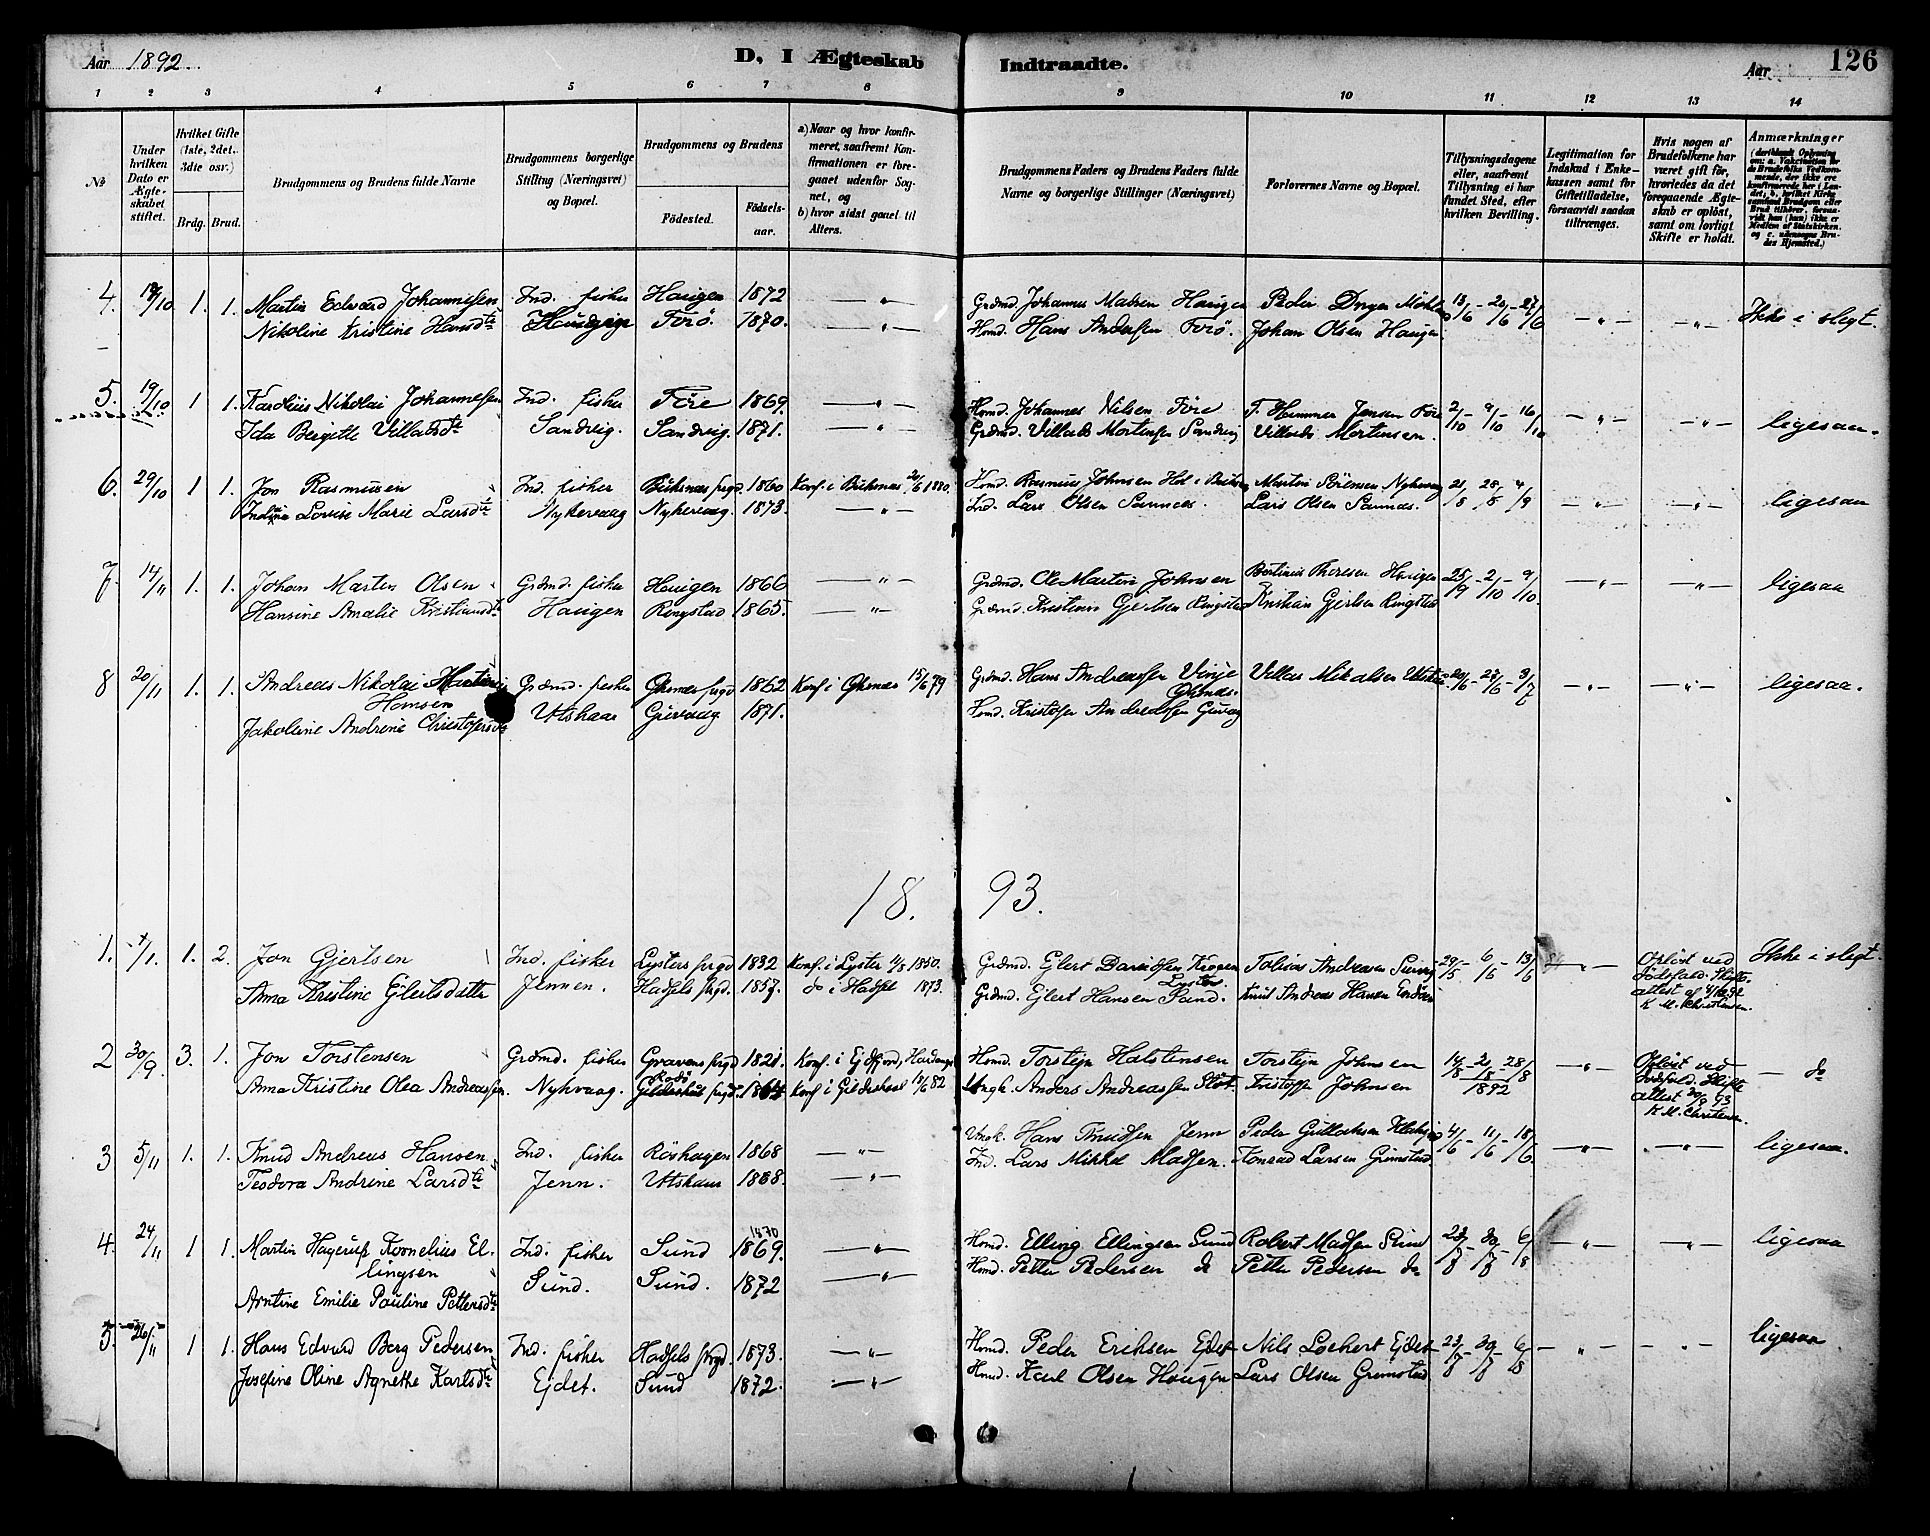 Aar 1892.
D, I Ægteskab Indtraadte.
Aar
126
1 2 3 4 5 6 7 8 9 10 11 12 13 14
No
Under hvilken Dato er Ægteskabet stiftet.
Hvilket Gifte (1ste, 2det, 3die osv.)
Brdg. Brud.
Brudgommens og Brudens fulde Navne
Brudgommens borgerlige Stilling (Næringsvei) og Bopæl.
Brudgommens og Brudens
Födested.
Födselsaar.
a) Naar og hvor konfirmeret, saafremt Konfirmationen er foregaaet udenfor Sognet, og
b) hvor sidst gaaet til Alters.
Brudgommens Faders og Brudens Faders fulde Navne og borgerlige Stillinger (Næringsvei)
Forlovernes Navne og Bopæl.
Tillysningsdagene eller, saafremt Tillysning ei har fundet Sted, efter hvilken Bevilling.
Legitimation for Indskud i Enkekassen samt for Giftetilladelse, forsaavidt saadan tiltrænges.
Hvis nogen af Brudefolkene har været gift för, hvorledes da det foregaaende Ægteskab er oplöst, samt om lovligt Skifte er holdt.
Anmærkninger
4. 1. 1. Martin Edvard Johannesen Ind. fisher Haugen 1872 — " — Grdmd. Johannes Madsen Haugen Peder 13/6 - 20/6 - 27/6 — " — — " — Ikke i slegt.
Nikoline Kristine Hansdtr Haugen Forö. 1870. — " — Hmd. Hans Andersen Forö. Johan Olsen Haugen
5. 19/10 1 1. Karolius Nikolai Johannessen Ind. fisher Före 1869. — " — Hmd. Johannes Nilsen Före T. Hammer Jensen Före 2/10 - 9/10 - 16/10 — " — — " — ligesaa.
Ida Bergette Villadsdtr Sandvig. Sandvig. 1871. — " — Grdmd. Villads Mortensen Sandvig Villads Mortensen.
6. 29/10 1 1. Jon Rasmusen Ind. fisher Buksnæs prgd. 1860 Konf. i Buksnæs 20/6 1880. Hmd. Rasmus Johnsen Hol i Martin Sörensen Nykvaag 21/8 - 28/8 - 4/9 — " — — " — ligesaa
Lovise Marie Larsdtr Nykervaag Nykervaag. 1873. — " — Ind. Lars Olsen Sannæs. Lars Olsen Sannæs.
7. 14/11 1. 1. Johan Martin Olsen Grdmd. fisher Haugen 1866 — " — Grdmd. Ole Martin Johnsen Haugen 25/9 - 2/10 - 9/10 — " — — " — ligesaa
Hansine Amalie Kristiansdtr Haugen Ringstad 1865. — " — Grdmd. Kristian Gjertsen Ringstad Kristian Gjertsen Ringstad
8 20/11 1. 1. Andreas Nikolai Grdmd. fisher Öksnæs prgd 1862 Konf. i Öksnæs 15/6 79 Grdmd. Hans Andreassen Vinje Villas Mikalsen Utskar 20/6 - 27/6 - 3/7 — " — — " — ligesaa.
Hansen Öksnæs.
Jakoline Andrine Christofersdtr Utskaar Guvaag 1871. Hmd. Kristofer Andreassen Guvaag
18. 93.
1. 1. 2. Jon Gjertsen Ind. fisher Lysters prgd 1832 Konf. i Lyster 1850. Grdmd. Ejlert Davidsen Krogen Tobias Andreasen 29/5 - 6/6 - 13/6 — " — Oplöst ved Ikke i slegt.
Lyster. Dödsfald. Skifte-
Anna Kristine Ejlertsdatter Jennen. Hadsels prgd. 1857. do i Hadsel 1873. Grdmd. Ejlert Hansen Sand. Knut Andreas Hansen attest af
K M. Christensen.
2 30/9 3. 1. Jon Torstensen Grdmd. fisher Gravens prgd 1821. Konf. i Ejdfjord, Hardanger Hmd. Torstejn Halstensen Torstejn Johnsen 14/8 - 21/8 - 28/8 — " — Oplöst ved — do
Anna Kristine Olea Andreassen. Nykvaag. Gildeskaal prgd. Konf. i Gildeskaal 82 Ungk. Anders Andreassen Kristoffer Johnsen 1892 Dödsfald. Skifte
attest 93
K. M. Christensen.
3 5/11 1. 1. Knud Andreas Hansen Ind. fisher Röshagen 1868 — " — Hans Knudsen Jenn Peder Gullaksen 4/6 - 11/6 - 18/6. — " — — " — ligesaa.
Teodora Andrine Larsdtr Jenn. Utskaar 1868. — " — Ind. Lars Mikkel Madsen. Konrad Larsen Grimstad.
4. 24/11 1 1. Martin Hagerup Kornelius El- Ind. fisher Sund 1870 1869. — " — Hmd. Elling Ellingsen Sund Robert Madsen Sund 23/7 - 30/7 - 6/8 — " — — " — ligesaa
lingsen
Arntine Emilie Pauline Pettersdtr Sund. Sund. 1872 — " — Hmd. Petter Pedersen do Petter Pedersen do
5. 26/11 1 1. Hans Edvard Berg Pedersen Ind. fisher Hadsels prgd. 1873. — " — Hmd. Peder Eriksen Ejdet Nils Lockert Ejdet 23/7 - 30/7 - 6/8 — " — — " — ligesaa
Josefine Oline Agnethe Karlsdtr Ejdet. Sund 1872. — " — Hmd. Karl Olsen Haugen Lars Olsen Grimstad